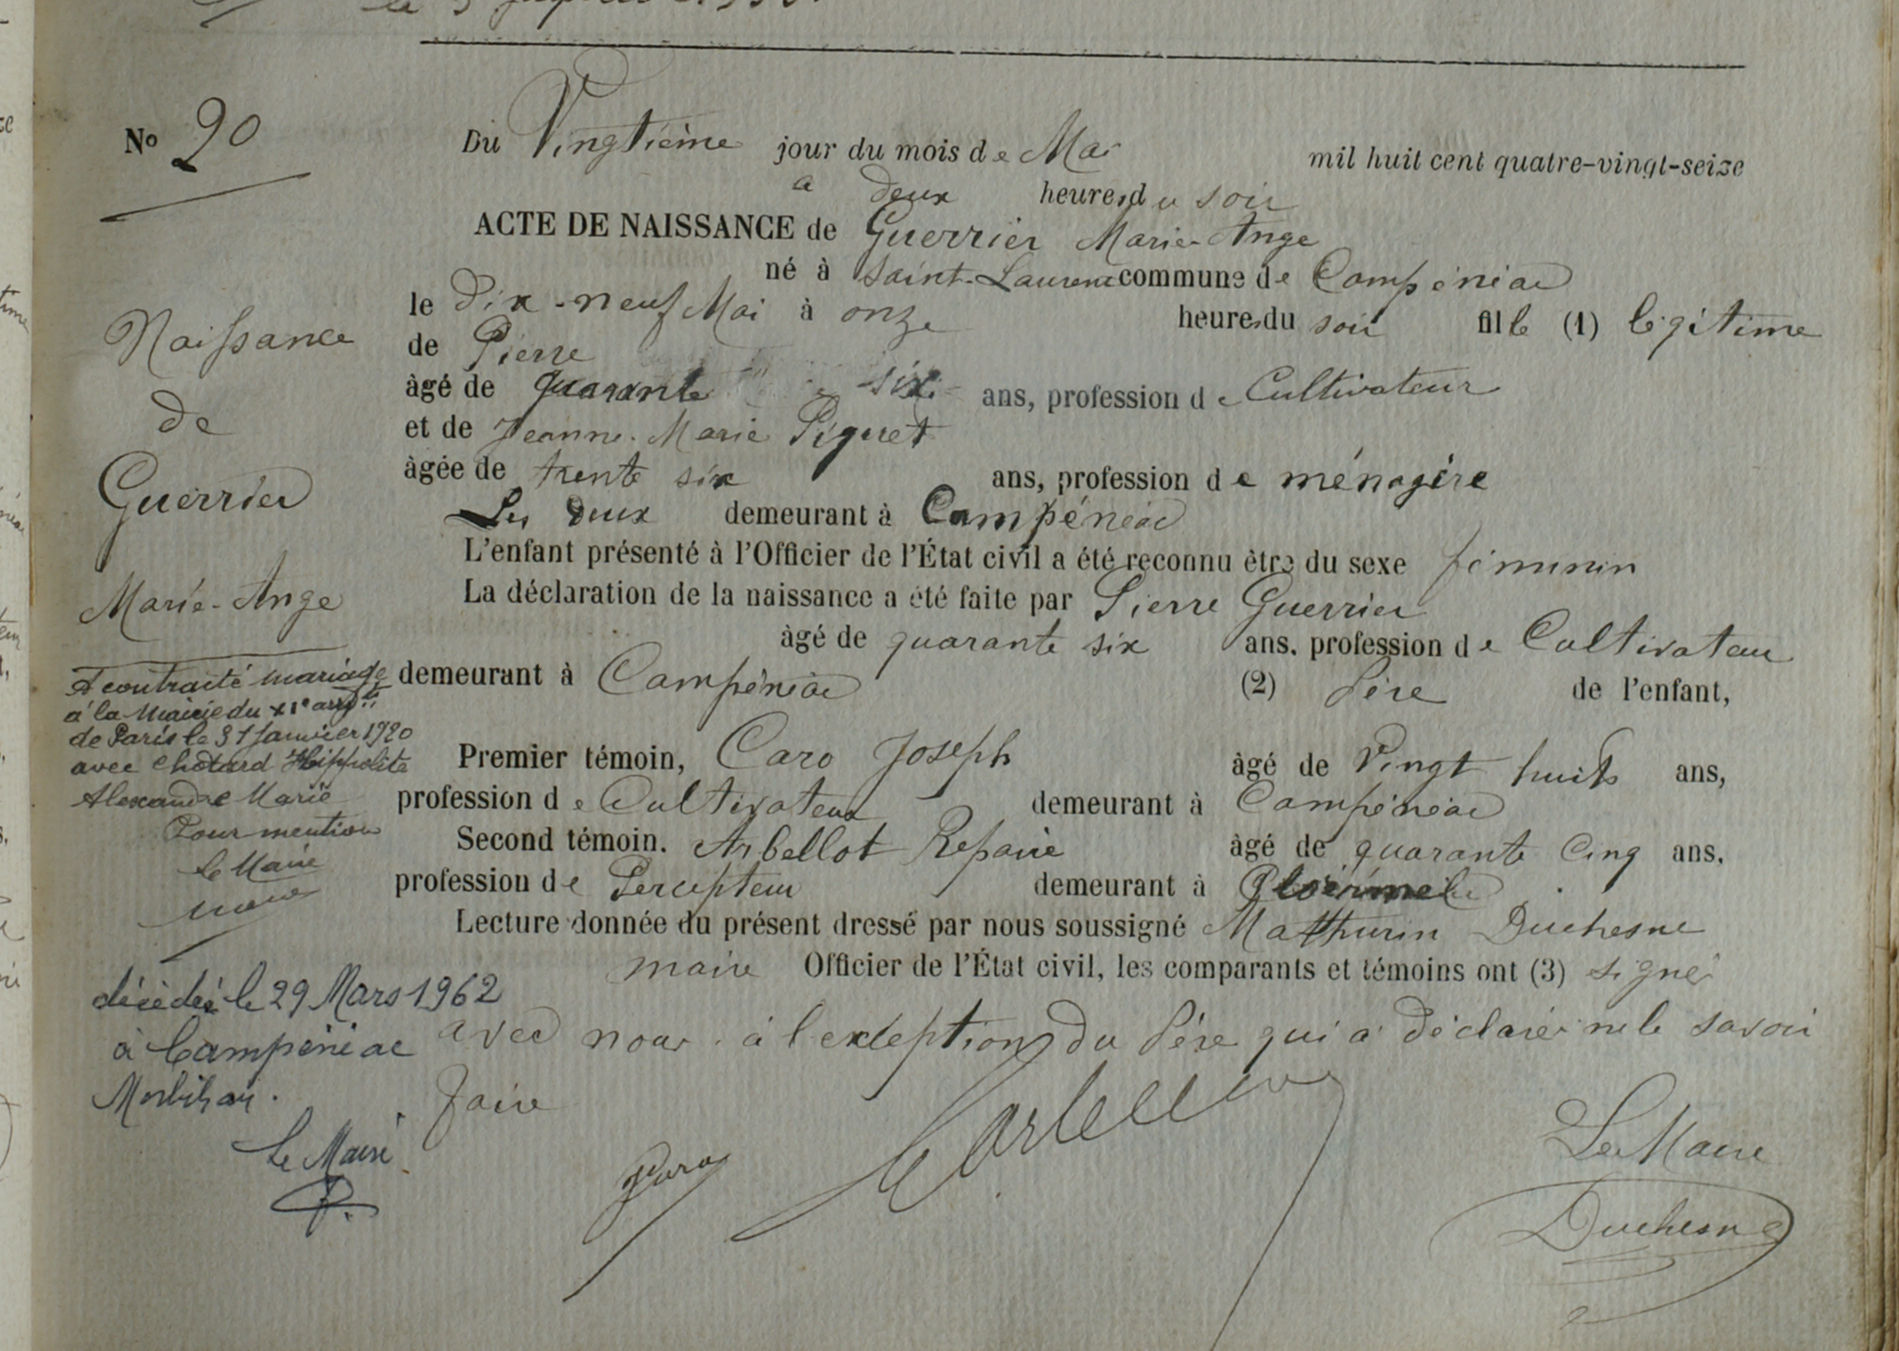 No 20
Du Vingtième jour du mois de Mai mil huit cent quatre-vingt-seize
a deux heures du soir
ACTE DE NAISSANCE de Guerrier Marie-Ange
né à Saint-Laurent commune de Campénéac
le dix-neuf Mai à onze heures du soir fille (1) légitime
de Pierre
âgé de quarante six ans, profession de Cultivateur
et de Jeanne-Marie Piquet
âgée de trente six ans, profession de ménagère
Les deux demeurant à Campénéac
L'enfant présenté à l'Officier de l'État civil a été reconnu être du sexe féminin
La déclaration de la naissance a été faite par Pierre Guerrier
âgé de quarante six ans, profession de Cultivateur
demeurant à Campénéac (2) Père de l'enfant,
Premier témoin, Caro Joseph âgé de Vingt huit ans,
profession de Cultivateur demeurant à Campénéac
Second témoin. Arbellot Repaire âgé de quarante cinq ans,
profession de Percepteur demeurant à Ploërmel
Lecture donnée du présent dressé par nous soussigné Mathurin Duchesne
maire Officier de l'État civil, les comparants et témoins ont (3) signé
avec nous à l'exception du Père qui a déclaré ne le savoir
faire
Caro
Le Maire
Duchesne
Naissance
de
Guerrier
Marie-Ange
A contracté mariage
à la Mairie du XIe arrdt
de Paris le 31 Janvier 1920
avec Chotard Hippolite
Alexandre Marie
Pour mention
Le Maire
décédée le 29 Mars 1962
à Campénéac
Morbihan.
Le Maire